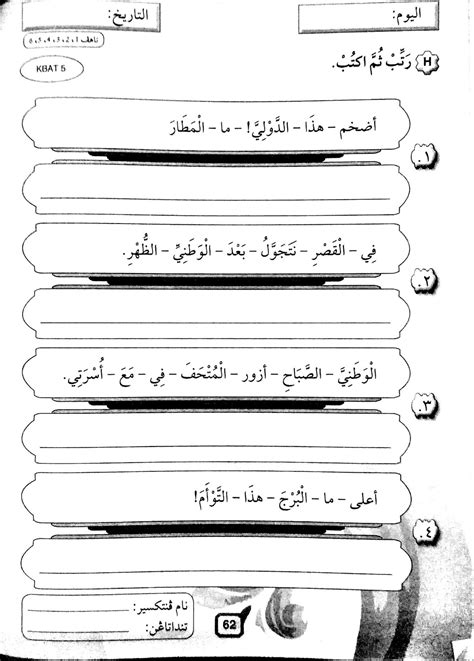 اليوم:
التاريخ:
H رَتِّبْ ثُمَّ اكتُبْ.
KBAT 5
أضخم – هذَا – الدَّوْلِيَّ! – ما – الْمَطَارَ
١.
فِي – الْقَصْرِ – نَتَجَوَّلُ – بَعْدَ – الْوَطَنِيِّ – الظُّهْرِ.
٢.
الْوَطَنِيَّ – الصَّبَاحِ – أزور – الْمُتْحَفَ – فِي – مَعَ – أُسْرَتِي.
٣.
أعلى – ما – الْبُرْجَ – هذَا – التَّوْأَمَ!
٤.
نام ڤنتكسير:
تنداتاڠن:
62